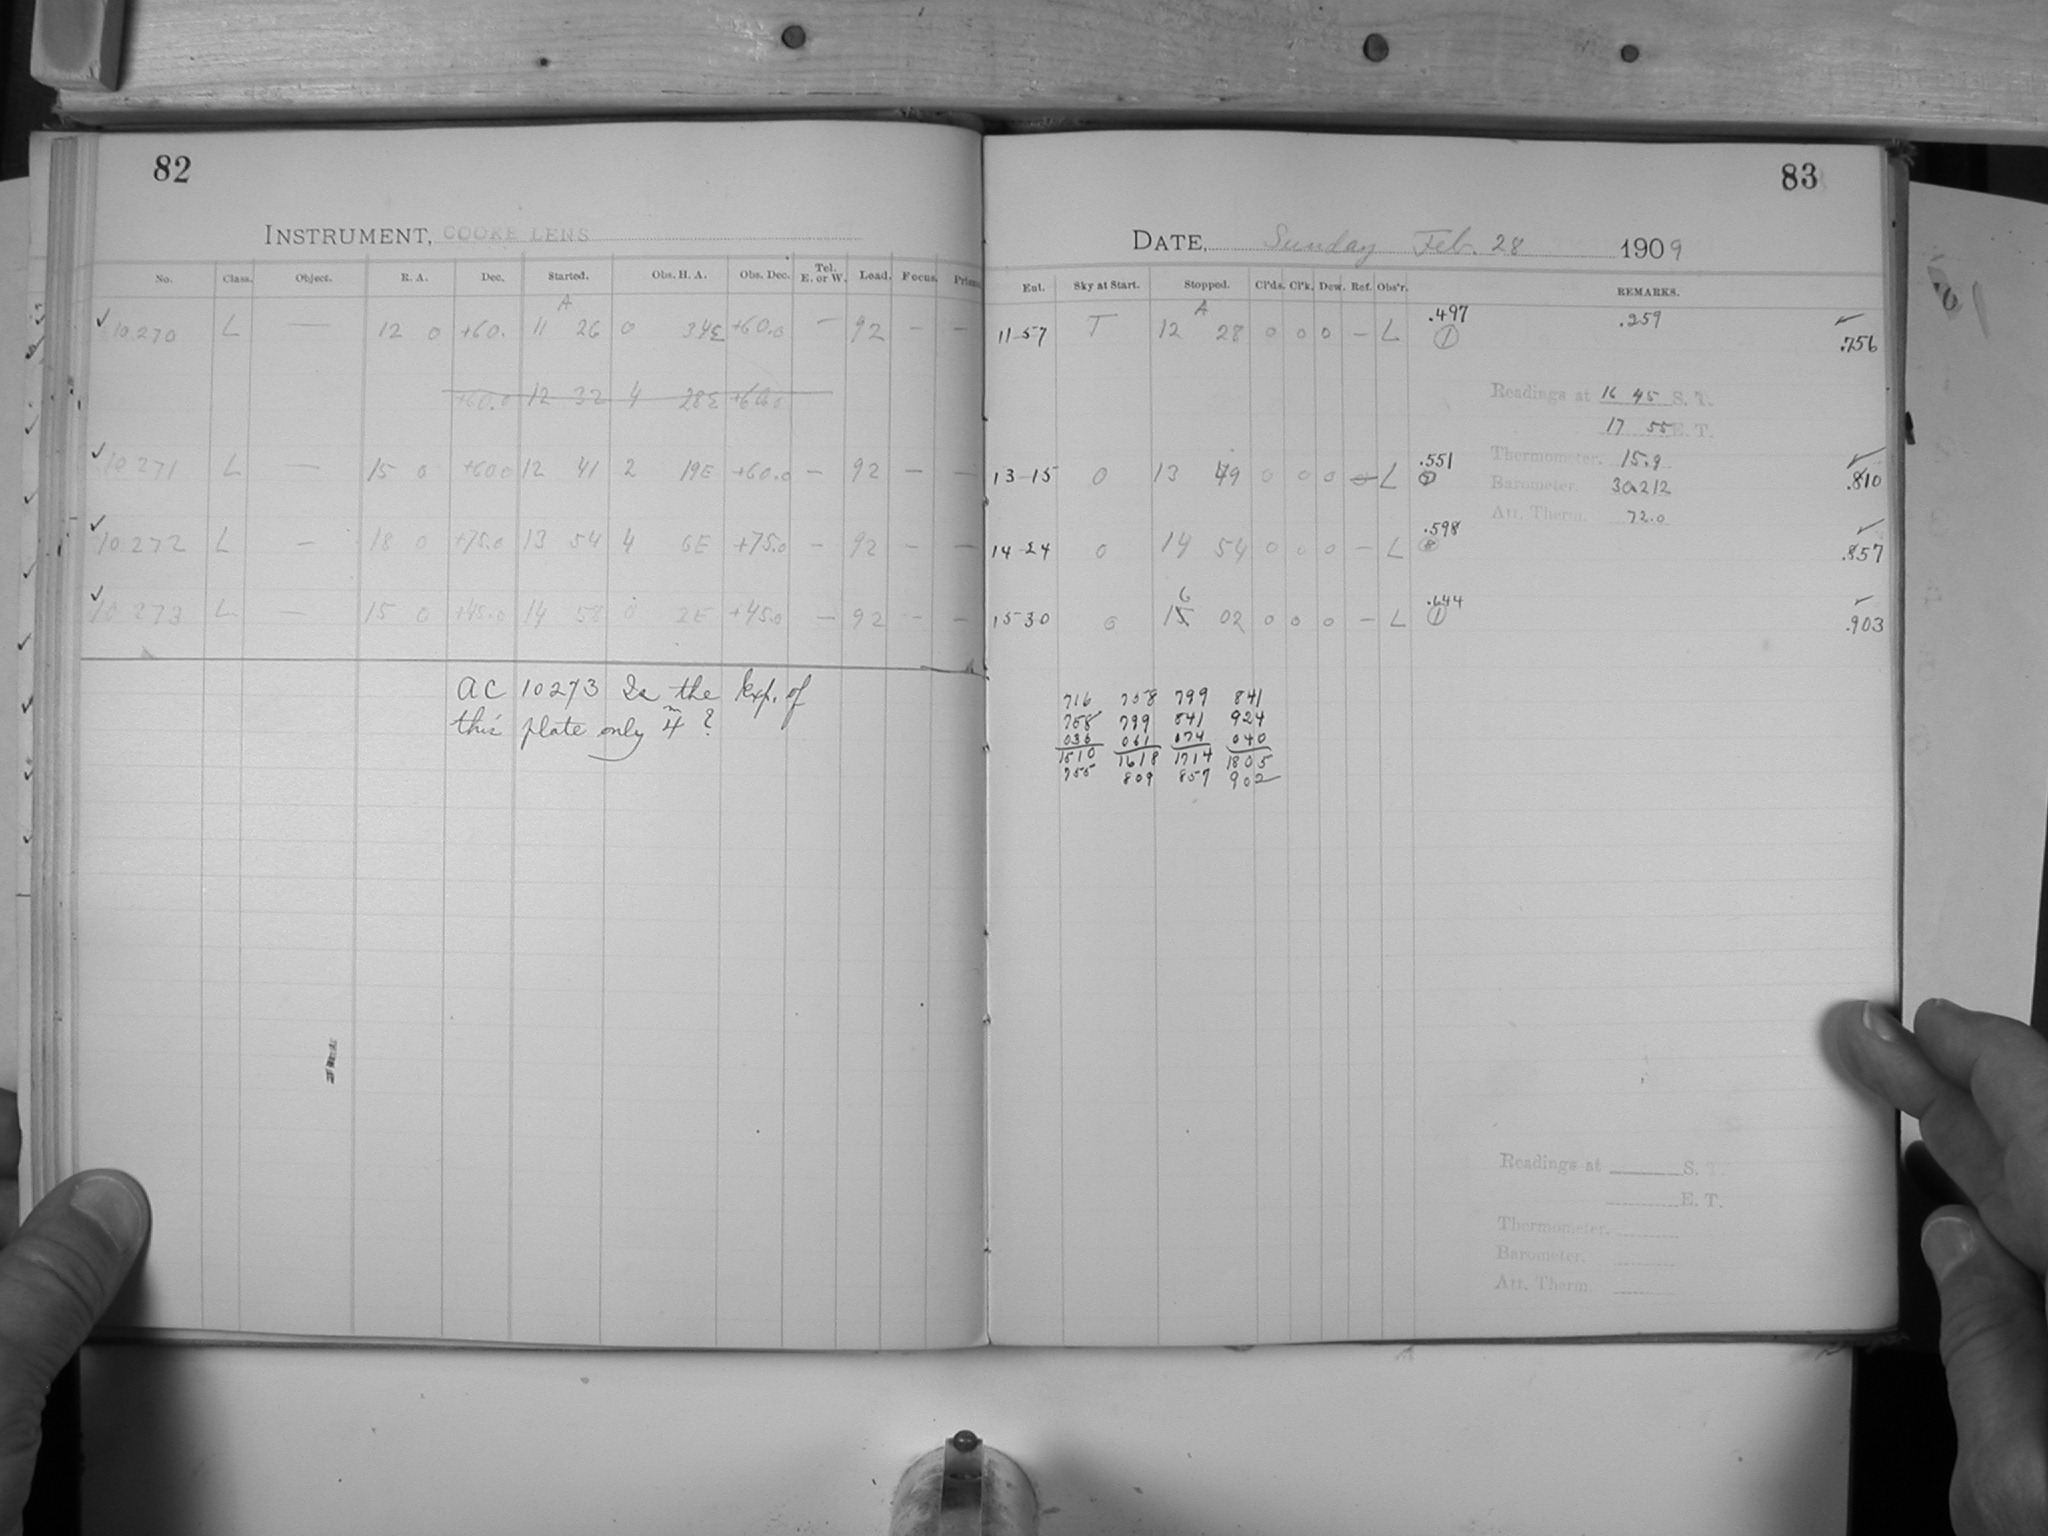 82
INSTRUMENT, COOKE LENS
No. Class. Object. R. A. Dec. Started. Obs. H. A. Obs. Dec. Tel. E. or W. Load. Focus. Prism.
A
✓ 10270 L — 12 0 +60. 11 26 0 34E +60.0 — 92 — —
+60.0 12 32 4 28E +60.0
✓ 10271 L — 15 0 +60.0 12 41 2 19E +60.0 — 92 — —
✓ 10272 L — 18 0 +75.0 13 54 4 6E +75.0 — 92 — —
✓ 10273 L — 15 0 +45.0 14 58 0 2E +45.0 — 92 — —
AC 10273 Is the Exp. of
this plate only 4m ?
83
DATE, Sunday Feb. 28 1909
Ent. Sky at Start. Stopped. Cl'ds. Cl'k. Dew. Ref. Obs'r. REMARKS.
A
11-57 T 12 28 0 0 0 — L .497 ① .259 ✓ .756
Readings at 16 45 S. T.
17 55 E. T.
13-15 0 13 49 0 0 0 — L .551 Thermometer. 15.9 ✓ .810
Barometer. 30.212
Att. Therm. 72.0
14-24 0 14 54 0 0 0 — L .598 ✓ .857
6
15-30 0 15 02 0 0 0 — L .644 ① ✓ .903
716 758 799 841
758 799 841 924
036 061 074 040
1510 1618 1714 1805
755 809 857 902
Readings at S. T.
E. T.
Thermometer.
Barometer.
Att. Therm.